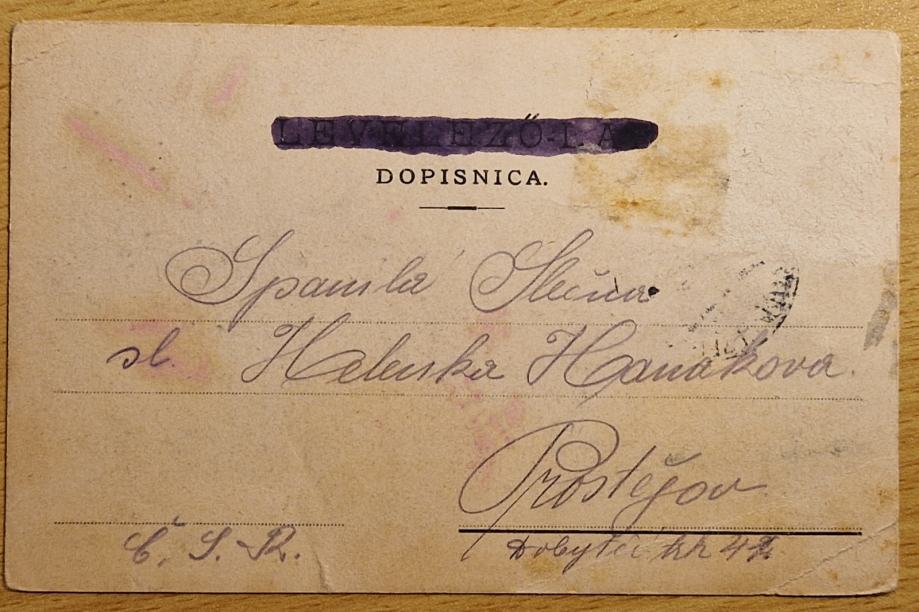 LEVELEZŐ-LA
DOPISNICA.
Spanilá Slečna
sl. Helenka Hanákova.
Prostějov
Č. S. R.